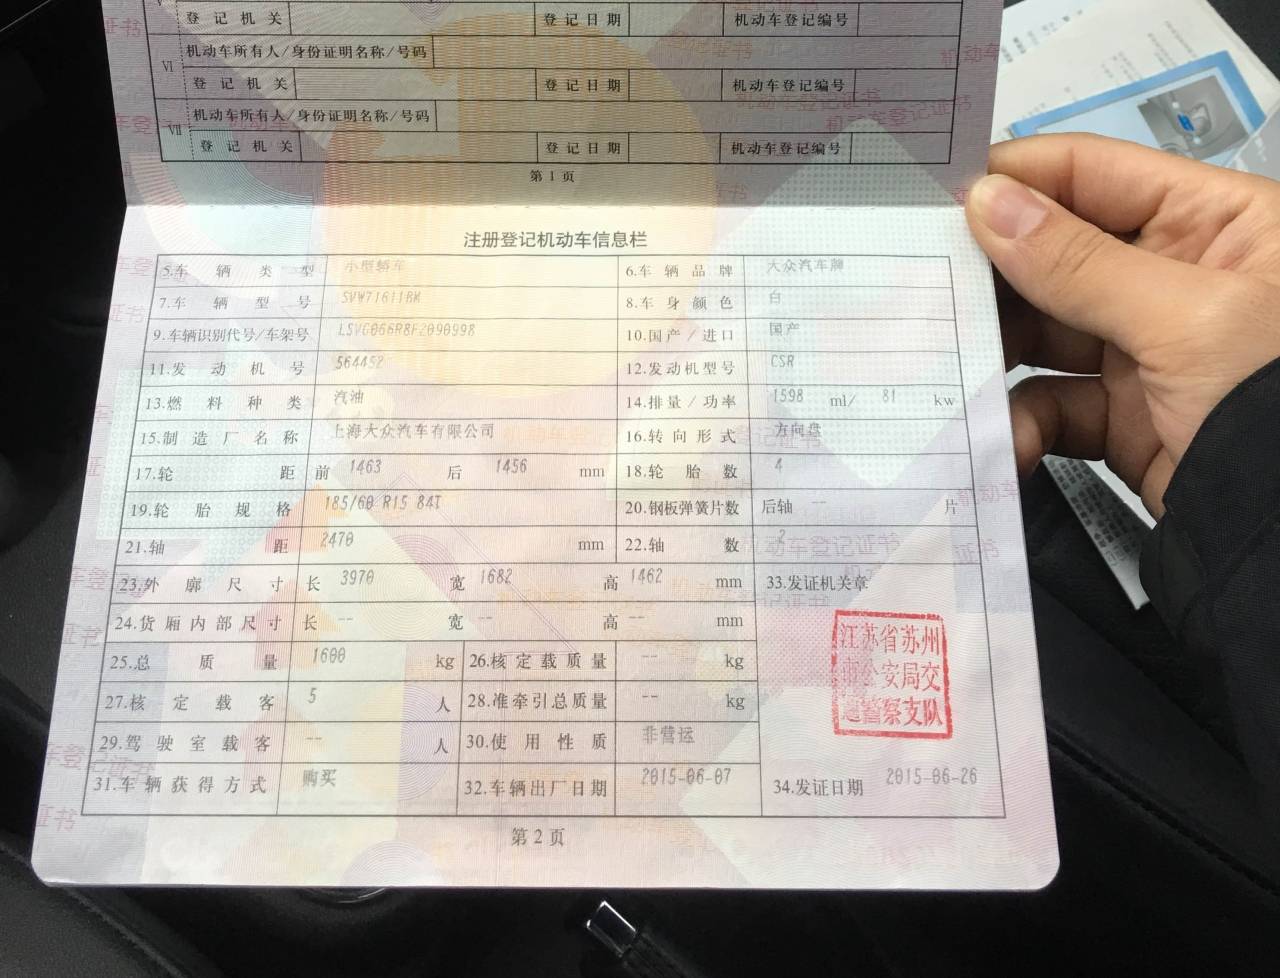 登记机关 登记日期 机动车登记编号
Ⅵ 机动车所有人/身份证明名称/号码
登记机关 登记日期 机动车登记编号
Ⅶ 机动车所有人/身份证明名称/号码
登记机关 登记日期 机动车登记编号
第1页
注册登记机动车信息栏
5.车辆类型 小型轿车 6.车辆品牌 大众汽车牌
7.车辆型号 SVW71611BK 8.车身颜色 白
9.车辆识别代号/车架号 10.国产/进口 国产
11.发动机号 564452 12.发动机型号 CSR
13.燃料种类 汽油 14.排量/功率 1598 ml/ 81 kw
15.制造厂名称 上海大众汽车有限公司 16.转向形式 方向盘
17.轮距 前 1463 后 1456 mm 18.轮胎数 4
19.轮胎规格 185/60 R15 84T 20.钢板弹簧片数 后轴 -- 片
21.轴距 2470 mm 22.轴数 2
23.外廓尺寸 长 3970 宽 1682 高 1462 mm 33.发证机关章
24.货厢内部尺寸 长 -- 宽 -- 高 -- mm
25.总质量 1600 kg 26.核定载质量 -- kg
江苏省苏州
市公安局交
巡警察支队
27.核定载客 5 人 28.准牵引总质量 -- kg
29.驾驶室载客 -- 人 30.使用性质 非营运
31.车辆获得方式 购买 32.车辆出厂日期 2015-06-07 34.发证日期 2015-06-26
第2页